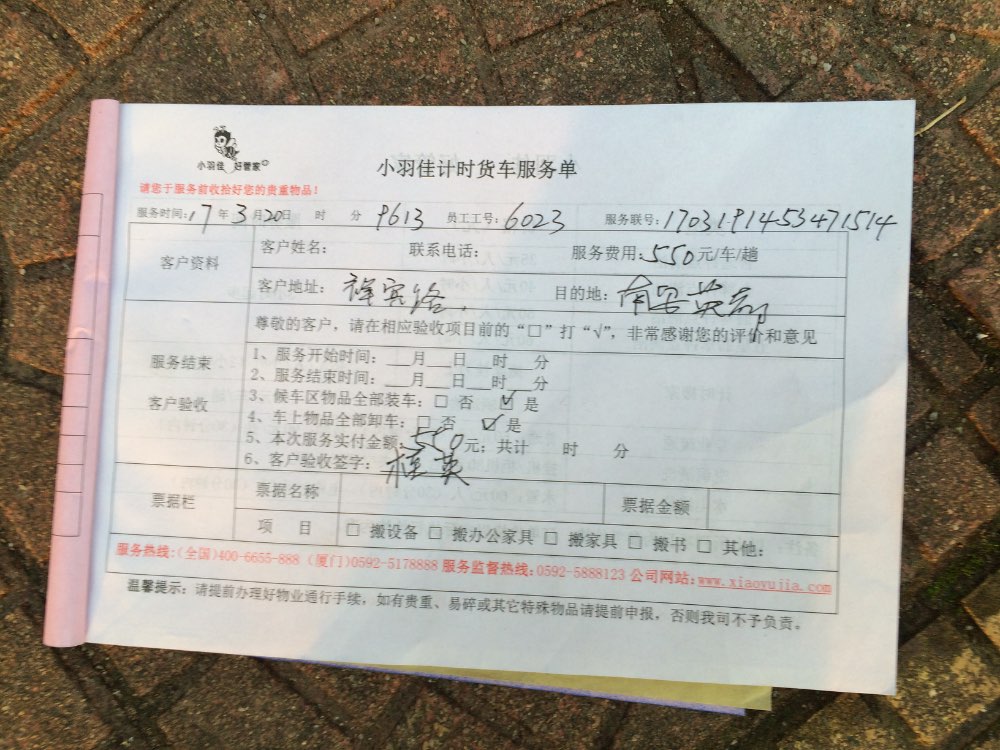 小羽佳 好管家
小羽佳计时货车服务单
请您于服务前收拾好您的贵重物品！
服务时间：17年3月20日 时 分 9613 员工工号：6023 服务联号：1703191453471514
客户资料
客户姓名： 联系电话： 服务费用：550元/车/趟
客户地址： 目的地：南安英都
尊敬的客户，请在相应验收项目前的“□”打“√”，非常感谢您的评价和意见
服务结束
客户验收
1、服务开始时间：___月___日___时___分
2、服务结束时间：___月___日___时___分
3、候车区物品全部装车：□ 否 ☑ 是
4、车上物品全部卸车：□ 否 ☑ 是
5、本次服务实付金额：550元；共计 时 分
6、客户验收签字：桂英
票据栏
票据名称 票据金额
项 目 □ 搬设备 □ 搬办公家具 □ 搬家具 □ 搬书 □ 其他：
服务热线：(全国)400-6655-888 (厦门)0592-5178888 服务监督热线：0592-5888123 公司网站：www.xiaoyujia.com
温馨提示：请提前办理好物业通行手续，如有贵重、易碎或其它特殊物品请提前申报，否则我司不予负责。